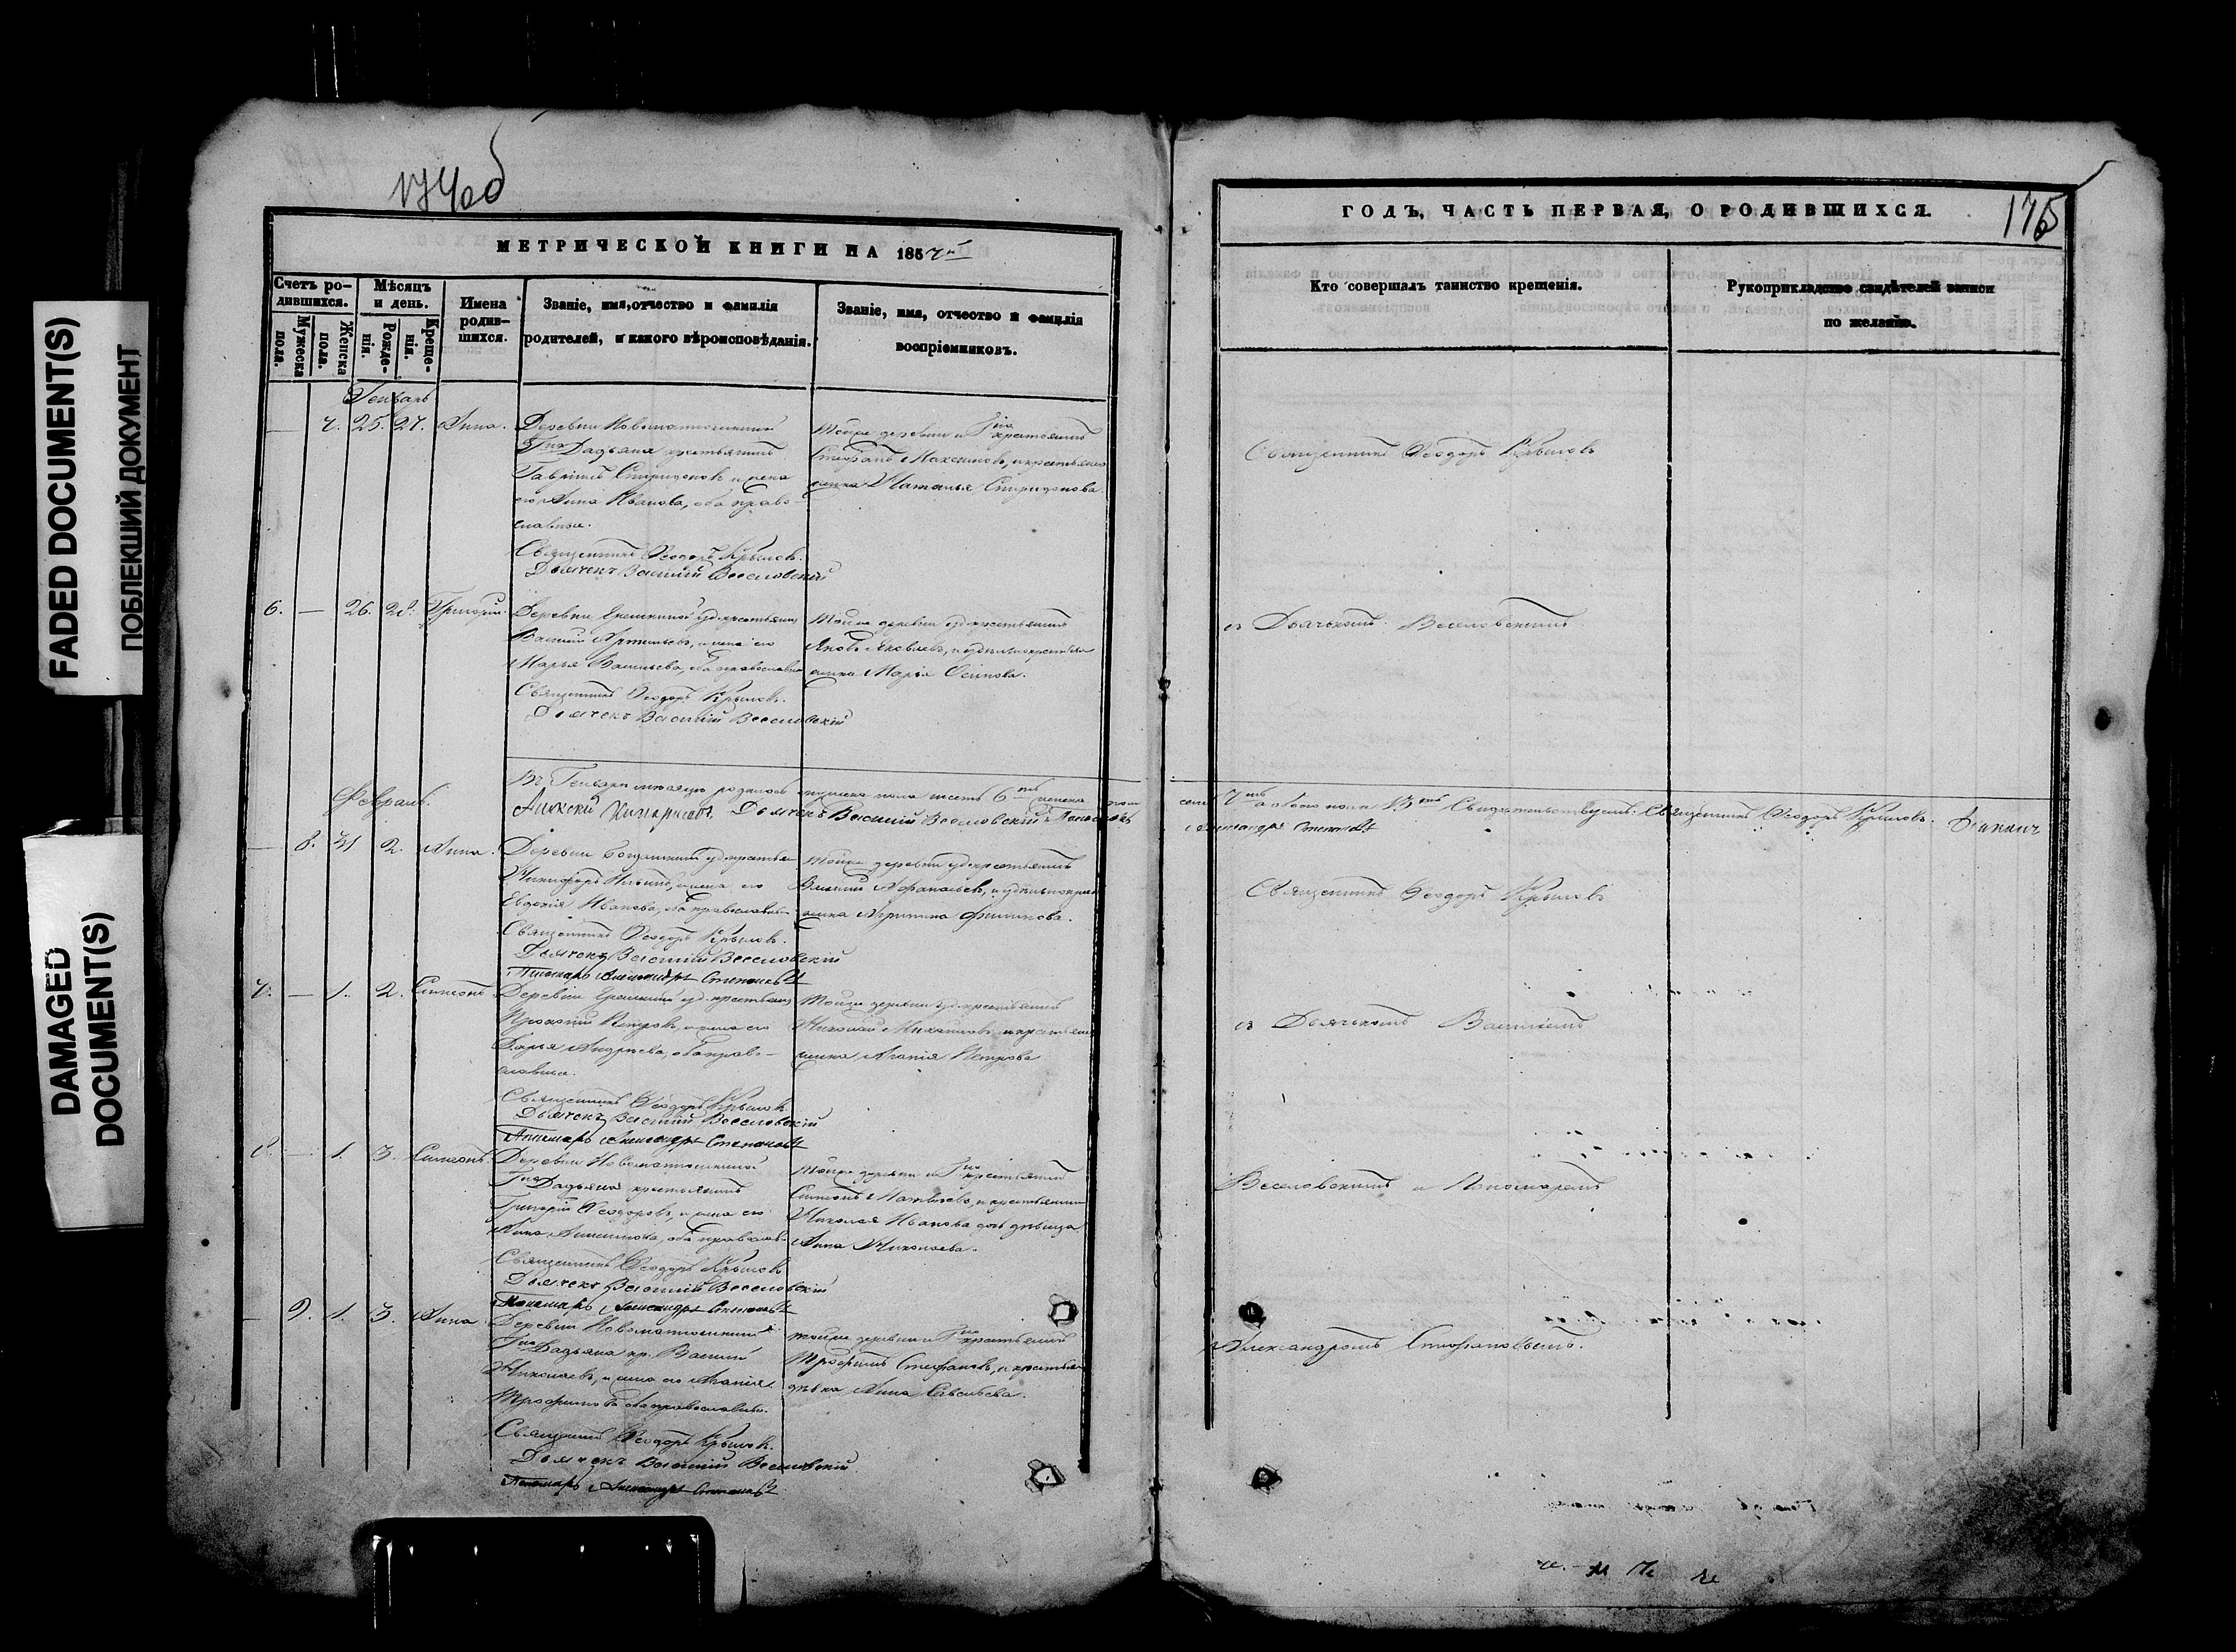 FADED DOCUMENT(S)
ПОБЛЕКШИЙ ДОКУМЕНТ
DAMAGED
DOCUMENT(S)
174об
МЕТРИЧЕСКОЙ КНИГИ НА 1857й
Счетъ ро-
дившихся.
Мужеска
пола.
Женска
пола.
Мѣсяцъ
и день.
Рожде-
нія.
Креще-
нія.
Имена
родив-
шихся.
Званіе, имя, отчество и фамилія
родителей, и какого вѣроисповѣданія.
Званіе, имя, отчество и фамилія
воспріемниковъ.
Генварь
— 7. 25. 27. Анна.
Деревни Новоматюшкиной
Гна Дадьяна крестьянинъ
Гавріилъ Спиридоновъ и жена
его Анна Иванова, оба право-
славные.
Священникъ Ѳеодоръ Крыловъ.
Дьячекъ Василій Веселовскій
Тойже деревни и Гна крестьянинъ
Стефанъ Максимовъ, и крестьян
Наталья Спиридонова.
6. — 26. 28. Григорій.
Деревни Еремкиной уд. крестьянинъ
Василій Артемьевъ, и жена его
Марья Васильева, оба православные
Священникъ Ѳеодоръ Крыловъ.
Дьячекъ Василій Веселовскій
Тойже деревни уд. крестьянинъ
Яковъ Яковлевъ,
Марья Осипова.
Въ Генварѣ мѣсяцѣ родилось мужеска пола шесть 6ть женска
Дьячекъ Василій Веселовскій
Февраль.
— 8. 31 2. Анна.
Деревни уд. крестьян
Никифоръ жена его
Евдокія Иванова, оба православные
Священникъ Ѳеодоръ Крыловъ.
Дьячекъ Василій Веселовскій
Пономарь Александръ Степановъ
Тойже деревни уд. крестьянинъ
Василій Афанасьевъ,
Филипова.
7. — 1. 2. Симеонъ.
Деревни Еремкиной уд. крестьянинъ
Прокопій Петровъ, и жена его
Дарья Андреева, оба право-
славные.
Священникъ Ѳеодоръ Крыловъ.
Дьячекъ Василій Веселовскій
Пономарь Александръ Степановъ
Тойже деревни уд. крестьянинъ
Николай Михайловъ, и крестьян
Агапія Петрова
8. — 1. 3. Симеонъ.
Деревни Новоматюшкиной
Гна Дадьяна крестьянинъ
Григорій Ѳеодоровъ, и жена его
Анна оба православ
Священникъ Ѳеодоръ Крыловъ
Дьячекъ Василій Веселовскій
Пономарь Александръ Степановъ
Тойже деревни и Гна крестьянинъ
Симеонъ Матвѣевъ, и крестьянина
Николая Иванова дочь дѣвица
Анна Николаева.
— 9. 1. 3. Анна
Деревни Новоматюшкиной
Гна Дадьяна кр. Василій
Николаевъ, и жена его Агапія
Трофимова оба православные.
Священникъ Ѳеодоръ Крыловъ.
Дьячекъ Василій Веселовскій
Пономарь Александръ Степановъ
Тойже деревни и Гна крестьянинъ
Трофимъ Стефановъ, и крестьян
дѣвка Анна
ГОДЪ, ЧАСТЬ ПЕРВАЯ, О РОДИВШИХСЯ.
175
Кто совершалъ таинство крещенія.
Рукоприкладство свидѣтелей записи
по желанію.
Священникъ Ѳеодоръ Крыловъ
съ Дьячькомъ Веселовскимъ
семь 7мь а обоего пола 13ть Свидѣтельствуемъ: Священникъ Ѳеодоръ Крыловъ.
Александръ Степановъ
Священникъ Ѳеодоръ Крыловъ
съ Дьячькомъ Василіемъ
Веселовскимъ и Пономаремъ
Александромъ Стефановымъ.